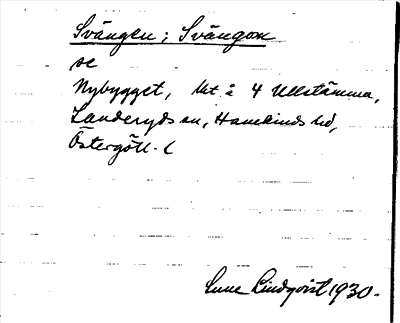 Svängen; Svängom
se
Nybygget, lht å 4 Ullstämma,
Landeryds sn, Hanekinds hd,
Östergötl. (
Sune Lindqvist 1930.